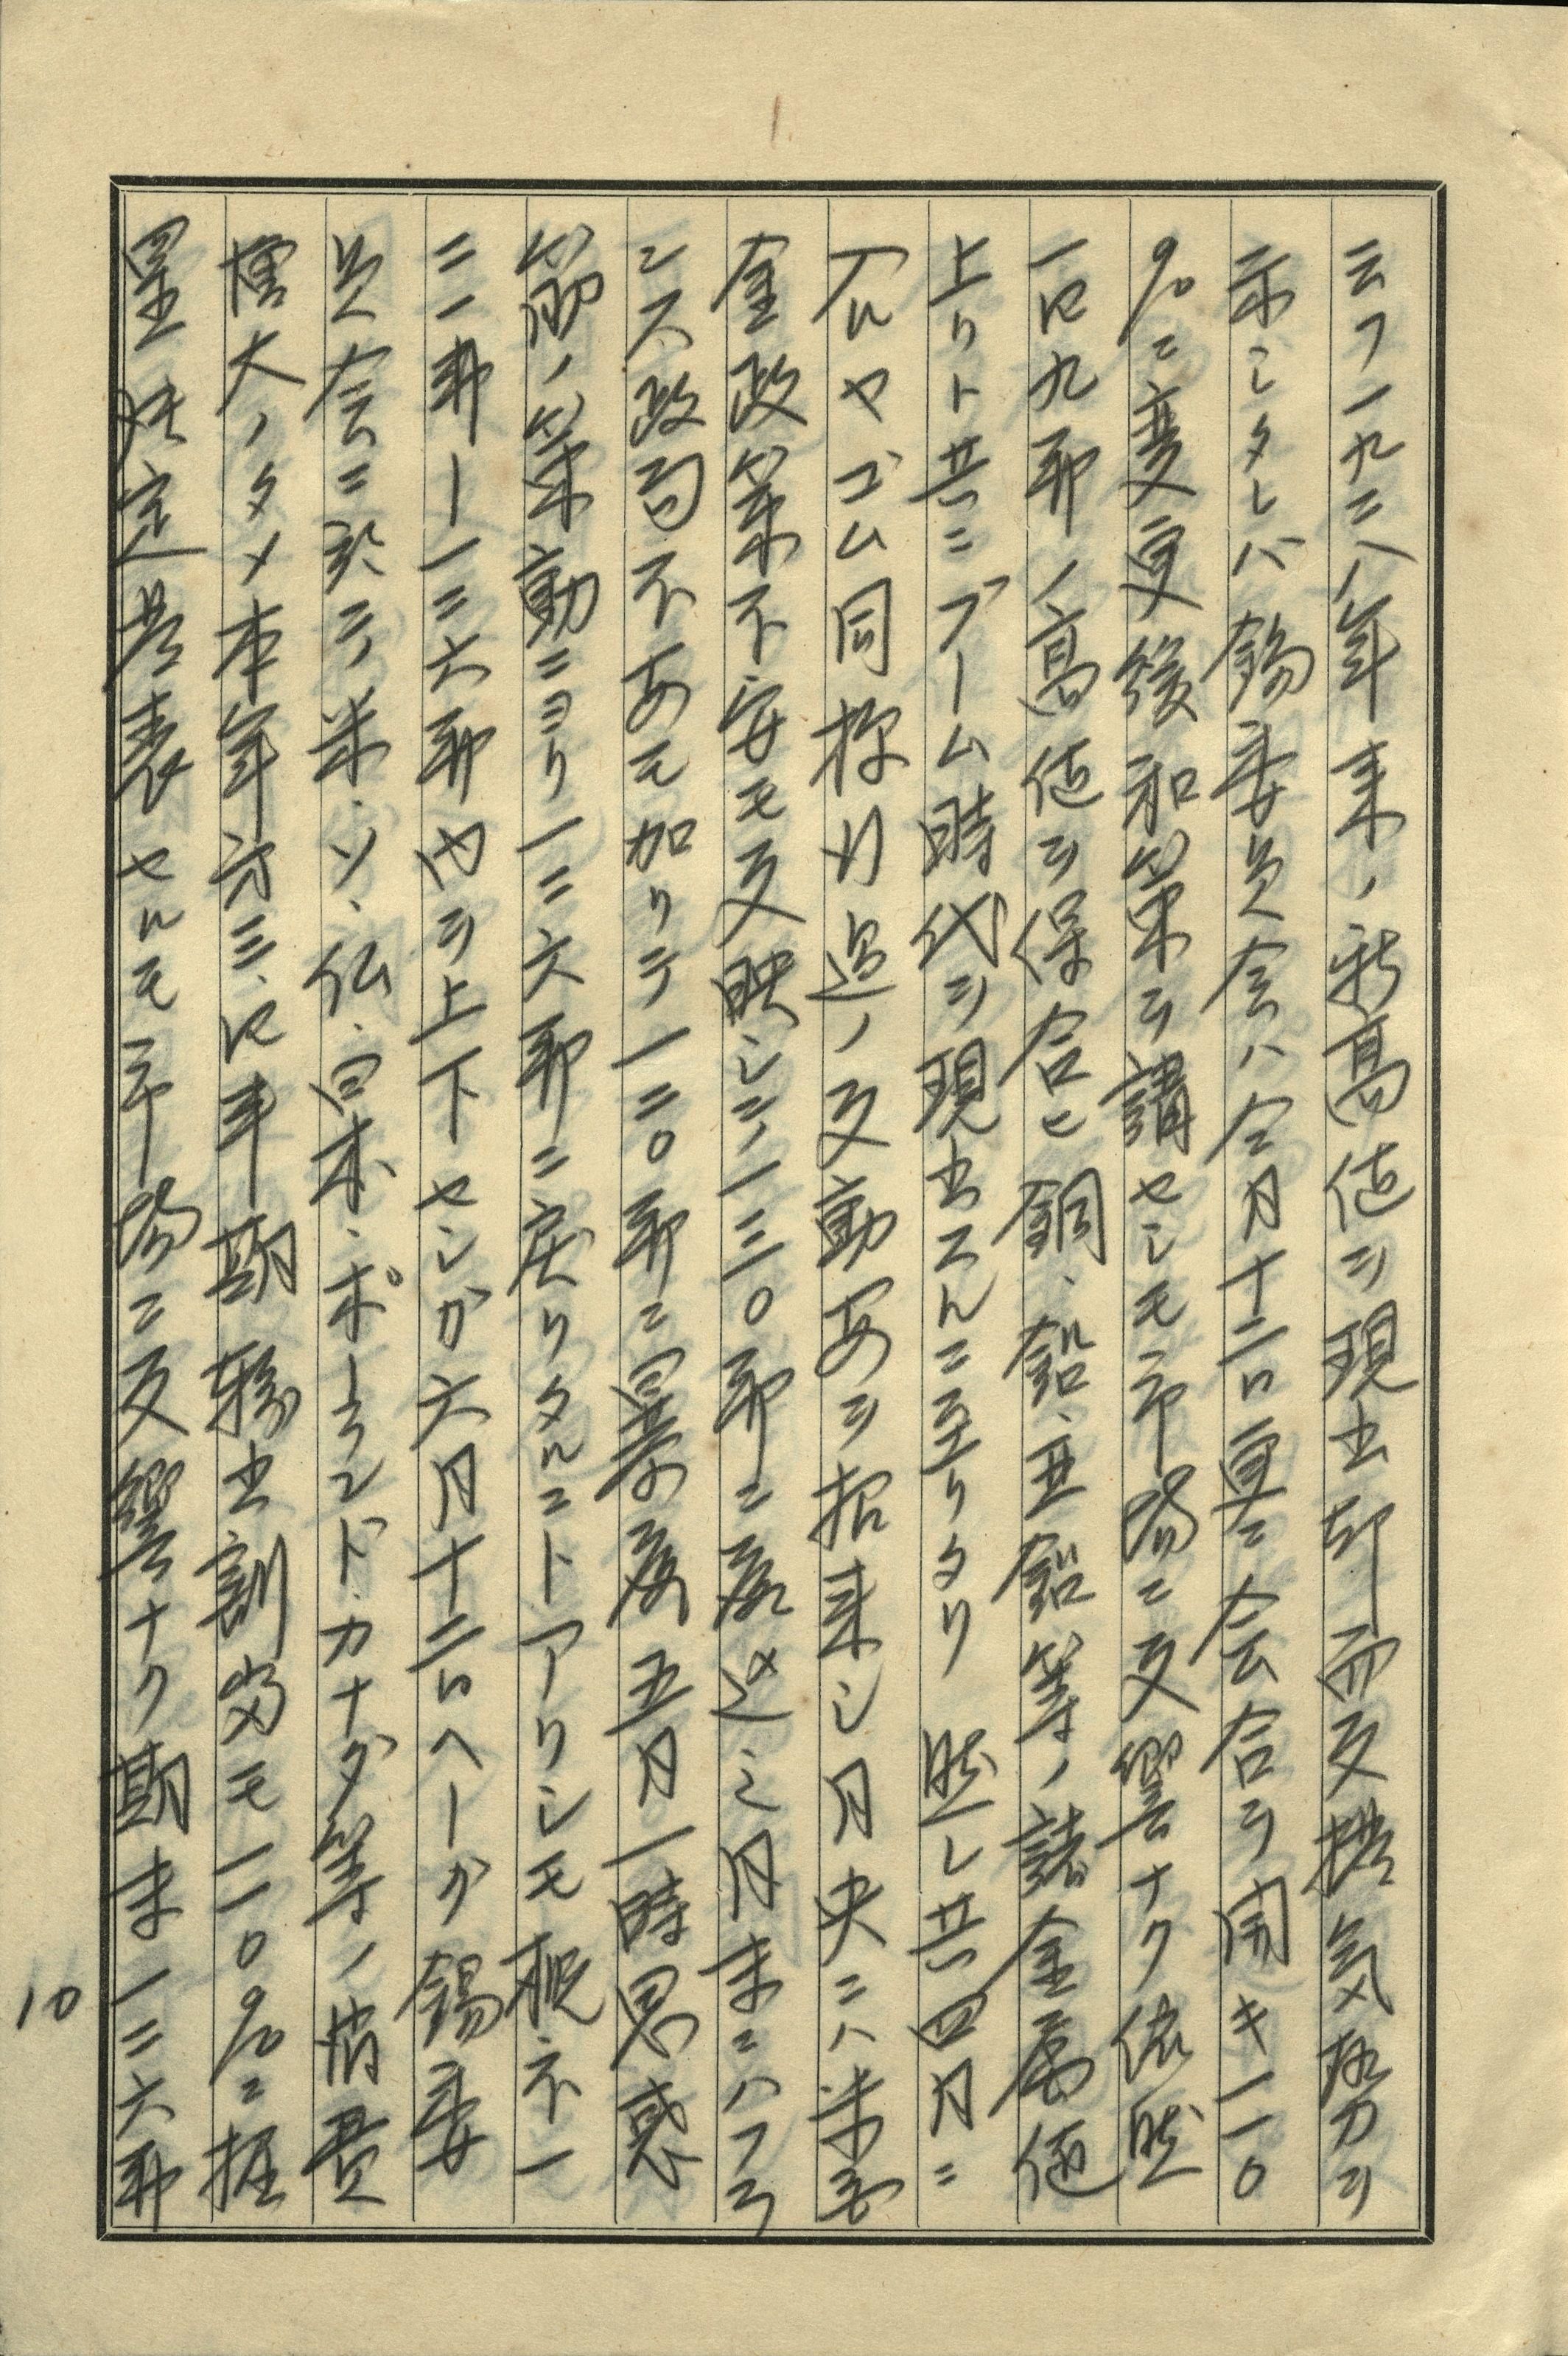 云フ一九二八年来ノ新高値ヲ現出却而反撥気勢ヲ
示シタレバ錫委員会ハ仝月十二日更ニ会合ヲ開キ一一〇
%ニ変更緩和策ヲ講セシモ市場ニ反響ナク依然
一四九听ノ高値ヲ保合ヒ銅、鉛、亜鉛等ノ諸金属値
上リト共ニブーム時代ヲ現出スルニ至リタリ 然レ共四月ニ
入ルヤゴム同様行過ノ反動安ヲ招来シ月央ニハ米国
金政策不安モ反映シテ一三〇听ニ落込ミ月末ニハフラ
ンス政局不安モ加リテ一二〇听ニ暴落五月一時思惑
筋ノ策動ニヨリ一二六听ニ戻リタルコトアリシモ概ネ一
二一听ー一二六听内ヲ上下センガ六月十二日ヘーグ錫委
員会ニ於テ米、ソ、仏、日本、ポーランド、カナダ等ノ消費
増大ノタメ本年六三、四半期輸出割当モ一一〇%ニ据
置決定発表セルモ市場ニ反響ナク期末一二六听
10